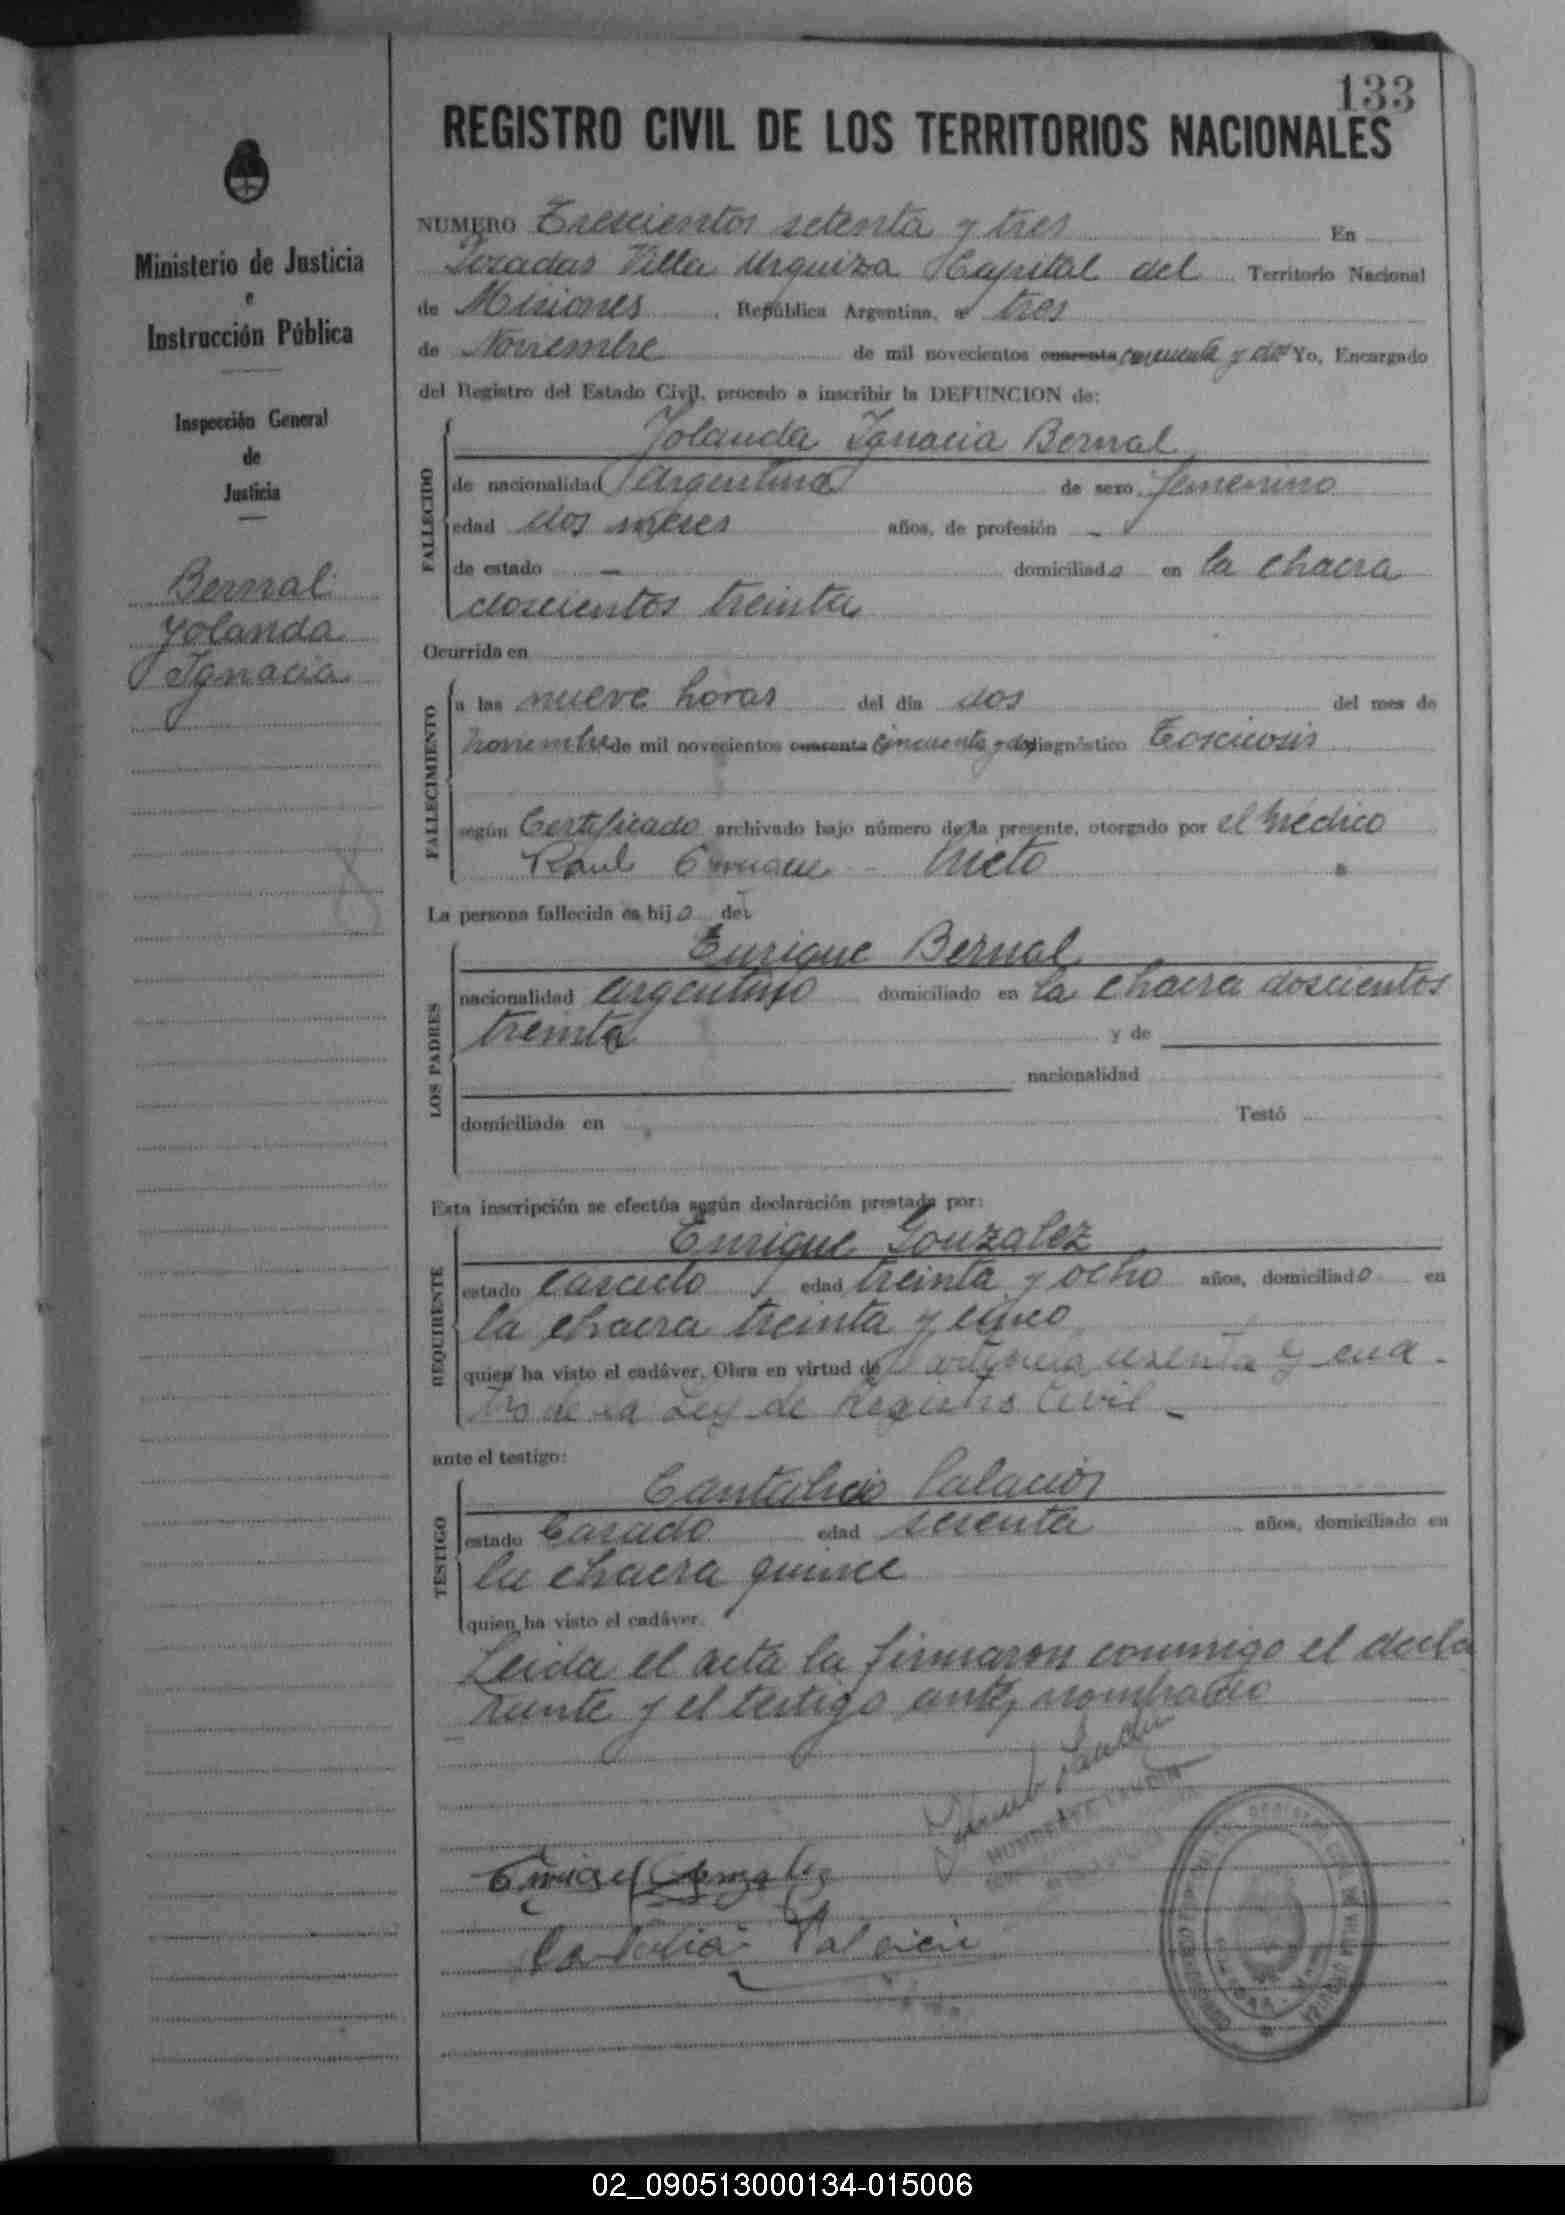 133
REGISTRO CIVIL DE LOS TERRITORIOS NACIONALES
Ministerio de Justicia
e
Instrucción Pública
Inspección General
de
Justicia
Bernal
Yolanda
Ignacia
NUMERO Trescientos setenta y tres En
Posadas Villa Urquiza Capital del Territorio Nacional
de Misiones, República Argentina, a tres
de Noviembre de mil novecientos cuarenta cincuenta y dos Yo, Encargado
del Registro del Estado Civil, procedo a inscribir la DEFUNCION de:
FALLECIDO
Yolanda Ignacia Bernal
de nacionalidad Argentina de sexo femenino
edad dos meses años, de profesión -
de estado - domiciliado en la chacra
doscientos treinta
Ocurrida en
FALLECIMIENTO
a las nueve horas del día dos del mes de
noviembre de mil novecientos cuarenta cincuenta y dos diagnóstico Toxicosis
según Certificado archivado bajo número de la presente, otorgado por el Médico
Raul Nieto
La persona fallecida es hija de:
LOS PADRES
Enrique Bernal
nacionalidad argentino domiciliado en la chacra doscientos
treinta y de
nacionalidad
domiciliada en Testó
Esta inscripción se efectúa según declaración prestada por:
REQUIRENTE
Enrique Gonzalez
estado casado edad treinta y ocho años, domiciliado en
la chacra treinta y cinco
quien ha visto el cadáver. Obra en virtud de artículo sesenta y cua-
tro de la Ley de Registro Civil-
ante el testigo:
TESTIGO
Cantalicio Palacios
estado Casado edad sesenta años, domiciliado en
la chacra quince
quien ha visto el cadáver.
Leida el acta la firmaron conmigo el decla
rante y el testigo antes nombrado
Enrique Gonzalez
02_090513000134-015006